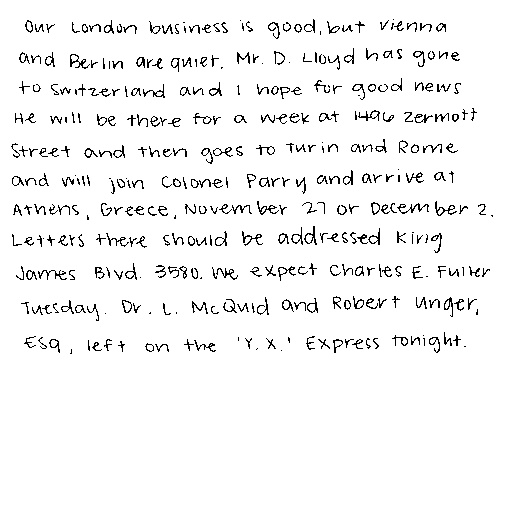 Our London business is good, but Vienna
and Berlin are quiet. Mr. D. Lloyd has gone
to Switzerland and I hope for good news
He will be there for a week at 1496 Zermott
Street and then goes to Turin and Rome
and will join Colonel Parry and arrive at
Athens, Greece, November 27 or December 2.
Letters there should be addressed King
James Blvd. 3580. We expect Charles E. Fuller
Tuesday. Dr. L. McQuid and Robert Unger,
Esq, left on the 'Y.X.' Express tonight.